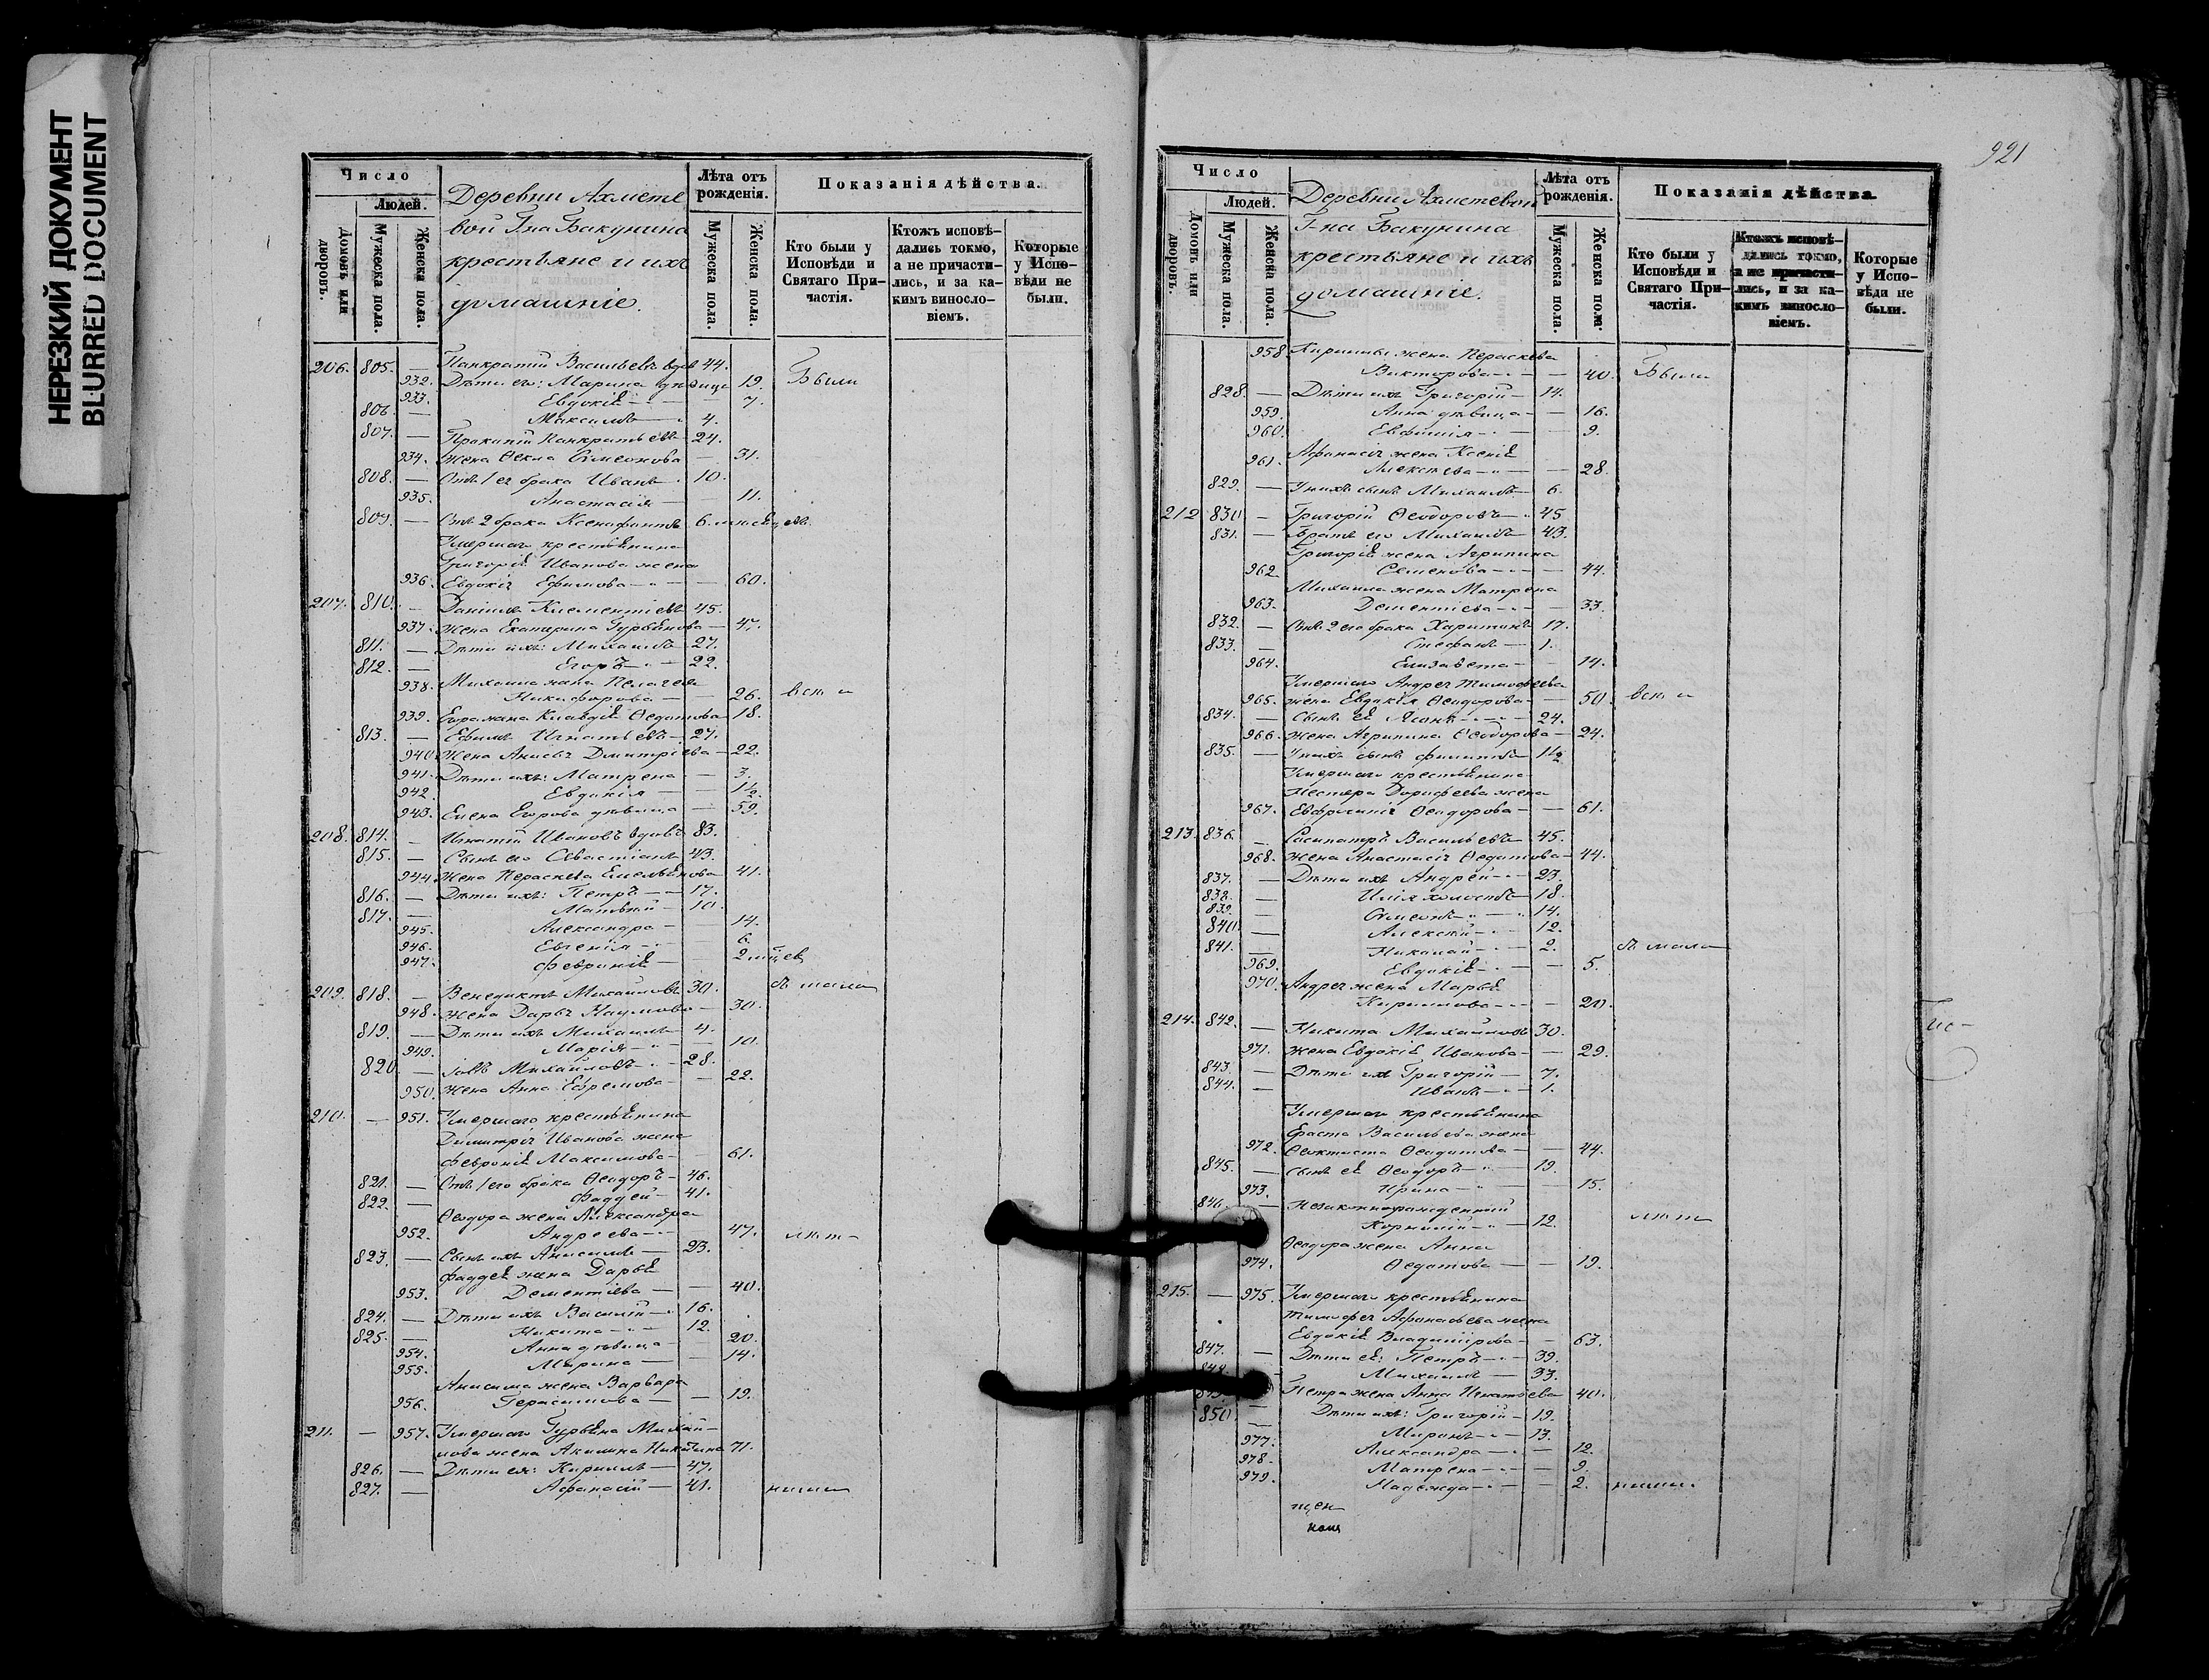 НЕРЕЗКИЙ ДОКУМЕНТ
BLURRED DOCUMENT
Число
Людей.
Домовъ или дворовъ.
Мужеска пола.
Женска пола.
Деревни Ахмете
вой Гна Бакунина
крестьяне и ихъ
домашніе.
Лѣта отъ рожденія.
Мужеска пола.
Женска пола.
Показанія дѣйства.
Кто были у Исповѣди и Святаго При-частія.
Ктожъ исповѣ-дались токмо, а не причасти-лись, и за ка-кимъ виносло-віемъ.
Которые у Испо-вѣди не были.
206. 805. — Панкратій Васильевъ вдов 44.
932. Дѣти его: Марина дѣвица 19. Были
933. Евдокія 7.
806. — Максимъ 4.
807. — Прокопій Панкратьевъ 24.
934. Жена Ѳекла Симеонова — 31.
808. — Отъ 1 ег брака Иванъ 10.
935. Анастасія — 11.
809. — Отъ 2 брака Ксенофонтъ 6. мѣсяцевъ.
Умершаго крестьянина
Григорія Иванова жена
936. Евдокія Ефимова — 60.
207. 810. — Даніилъ Климентіевъ 45.
937. Жена Екатерина Гурьянова — 47.
811. — Дѣти ихъ: Михаилъ 27.
812. — Егоръ 22.
938. Михаила жена Пелагея
Никифорова — 26. всѣ и
939. Егора жена Клавдія Ѳедотова 18.
813. — Ефимъ Игнатьевъ 27.
940. Жена Анисья Дмитріева — 22.
941. Дѣти ихъ: Матрена — 3.
942. Евдокія — 1½.
943. Елена Егорова дѣвица — 59.
208. 814. — Игнатій Ивановъ вдовъ 83.
815. — Сынъ его Севастіанъ 43.
944. Жена Параскева Емельянова 41.
816. — Дѣти ихъ: Петръ 17.
817. — Матвѣй 10.
945. Александра — 14.
946. Евгенія 6.
947. Февронія — 2 мѣсяцев
209. 818. — Венедиктъ Михайловъ 30. съ мала
948. Жена Дарья Наумова — 30.
819. — Дѣти ихъ Михаилъ 4.
949. Марія — 10.
820. — Іовъ Михайловъ 28.
950. Жена Анна Ефремова — 22.
210. — 951. Умершаго крестьянина
Димитрія Иванова жена
Февронія Максимова — 61.
821. — Отъ 1 его брака Ѳеодоръ 46.
822. — Фаддей 41.
Ѳеодора жена Александра
952. Андреева 47. лѣт-
823. — Сынъ ихъ Анисимъ 23.
Фаддея жена Дарья
953. Дементіева — 40.
824. — Дѣти ихъ Василій 16.
825. — Никита 12.
954. Анна дѣвица 20.
955. Марина — 14.
Анисима жена Варвара
956. Герасимова — 19.
211. — 957. Умершаго Гурьяна Михай-
лова жена Акилина Никитина 71.
826. — Дѣти ея: Кириллъ 47.
827. — Афанасій 41. ними
921
Число
Людей.
Домовъ или дворовъ.
Мужеска пола.
Женска пола.
Деревни Ахметевой
Г-на Бакунина
крестьяне и ихъ
домашніе.
Лѣта отъ рожденія.
Мужеска пола.
Женска пола.
Показанія дѣйства.
Кто были у Исповѣди и Святаго При-частія.
Ктожъ исповѣ-дались токмо, а не причасти-лись, и за ка-кимъ виносло-віемъ.
Которые у Испо-вѣди не были.
958. Кирилы жена Параскева
Викторова — 40. Были
828. — Дѣти ихъ Григорій 14.
959. Анна дѣвица — 16.
960. Евфимія — 9.
961. Афанасія жена Ксенія
Алексѣева — 28.
829. — У нихъ сынъ Михаилъ 6.
212 830 — Григорій Ѳеодоровъ 45
831. — Братъ его Михаилъ 43.
Григорія жена Агрипина
962 Семенова — 44.
Михаила жена Матрена
963. Дементіева — 33.
832. — Отъ 2 его брака Харитонъ 17.
833. — Стефанъ 1.
964. Елизавета — 14.
Умершаго Андрея Тимофеева
965. жена Евдокія Ѳеодорова — 50. всѣ и
834. — Сынъ ея Ясонъ 24.
966. Жена Агрипина Ѳеодорова — 24.
835. — У нихъ сынъ Филиппъ 1½
Умершаго крестьянина
Нестера Дорофеева жена
967. Евфросинія Ѳеодорова — 61.
213. 836. — Сосипатръ Васильевъ 45.
968. Жена Анастасія Ѳедотова 44.
837. — Дѣти ихъ Андрей 23.
838. — Илія холостъ 18.
839. — Симеонъ 14.
840. — Алексѣй 12.
841. — Николай 2. съ мала
969. Евдокія — 5.
970. Андрея жена Марья
Кирилова — 20.
214. 842. — Никита Михайловъ 30.
971. Жена Евдокія Иванова — 29.
843. — Дѣти ихъ Григорій 7.
844. — Иванъ 1.
Умершаго крестьянина
Ераста Васильева жена
972. Ѳеоктиста Ѳедотова — 44.
845. — Сынъ ея Ѳеодоръ 19.
973. Ирина — 15.
846. — Незаконнорожденный
Корнилій 12. лѣт
Ѳеодора жена Анна
974. Ѳедотова — 19.
215. — 975. Умершаго крестьянина
Тимофея Афанасьева жена
Евдокія Владимірова — 63.
847. — Дѣти ея: Петръ 39.
848. Михаилъ 33.
Петра жена Анна Игнатьева 40.
850. — Дѣти ихъ: Григорій 19.
— Миронъ 13.
977. Александра — 12.
978. Матрена — 9.
979. Надежда — 2. ними.
щен